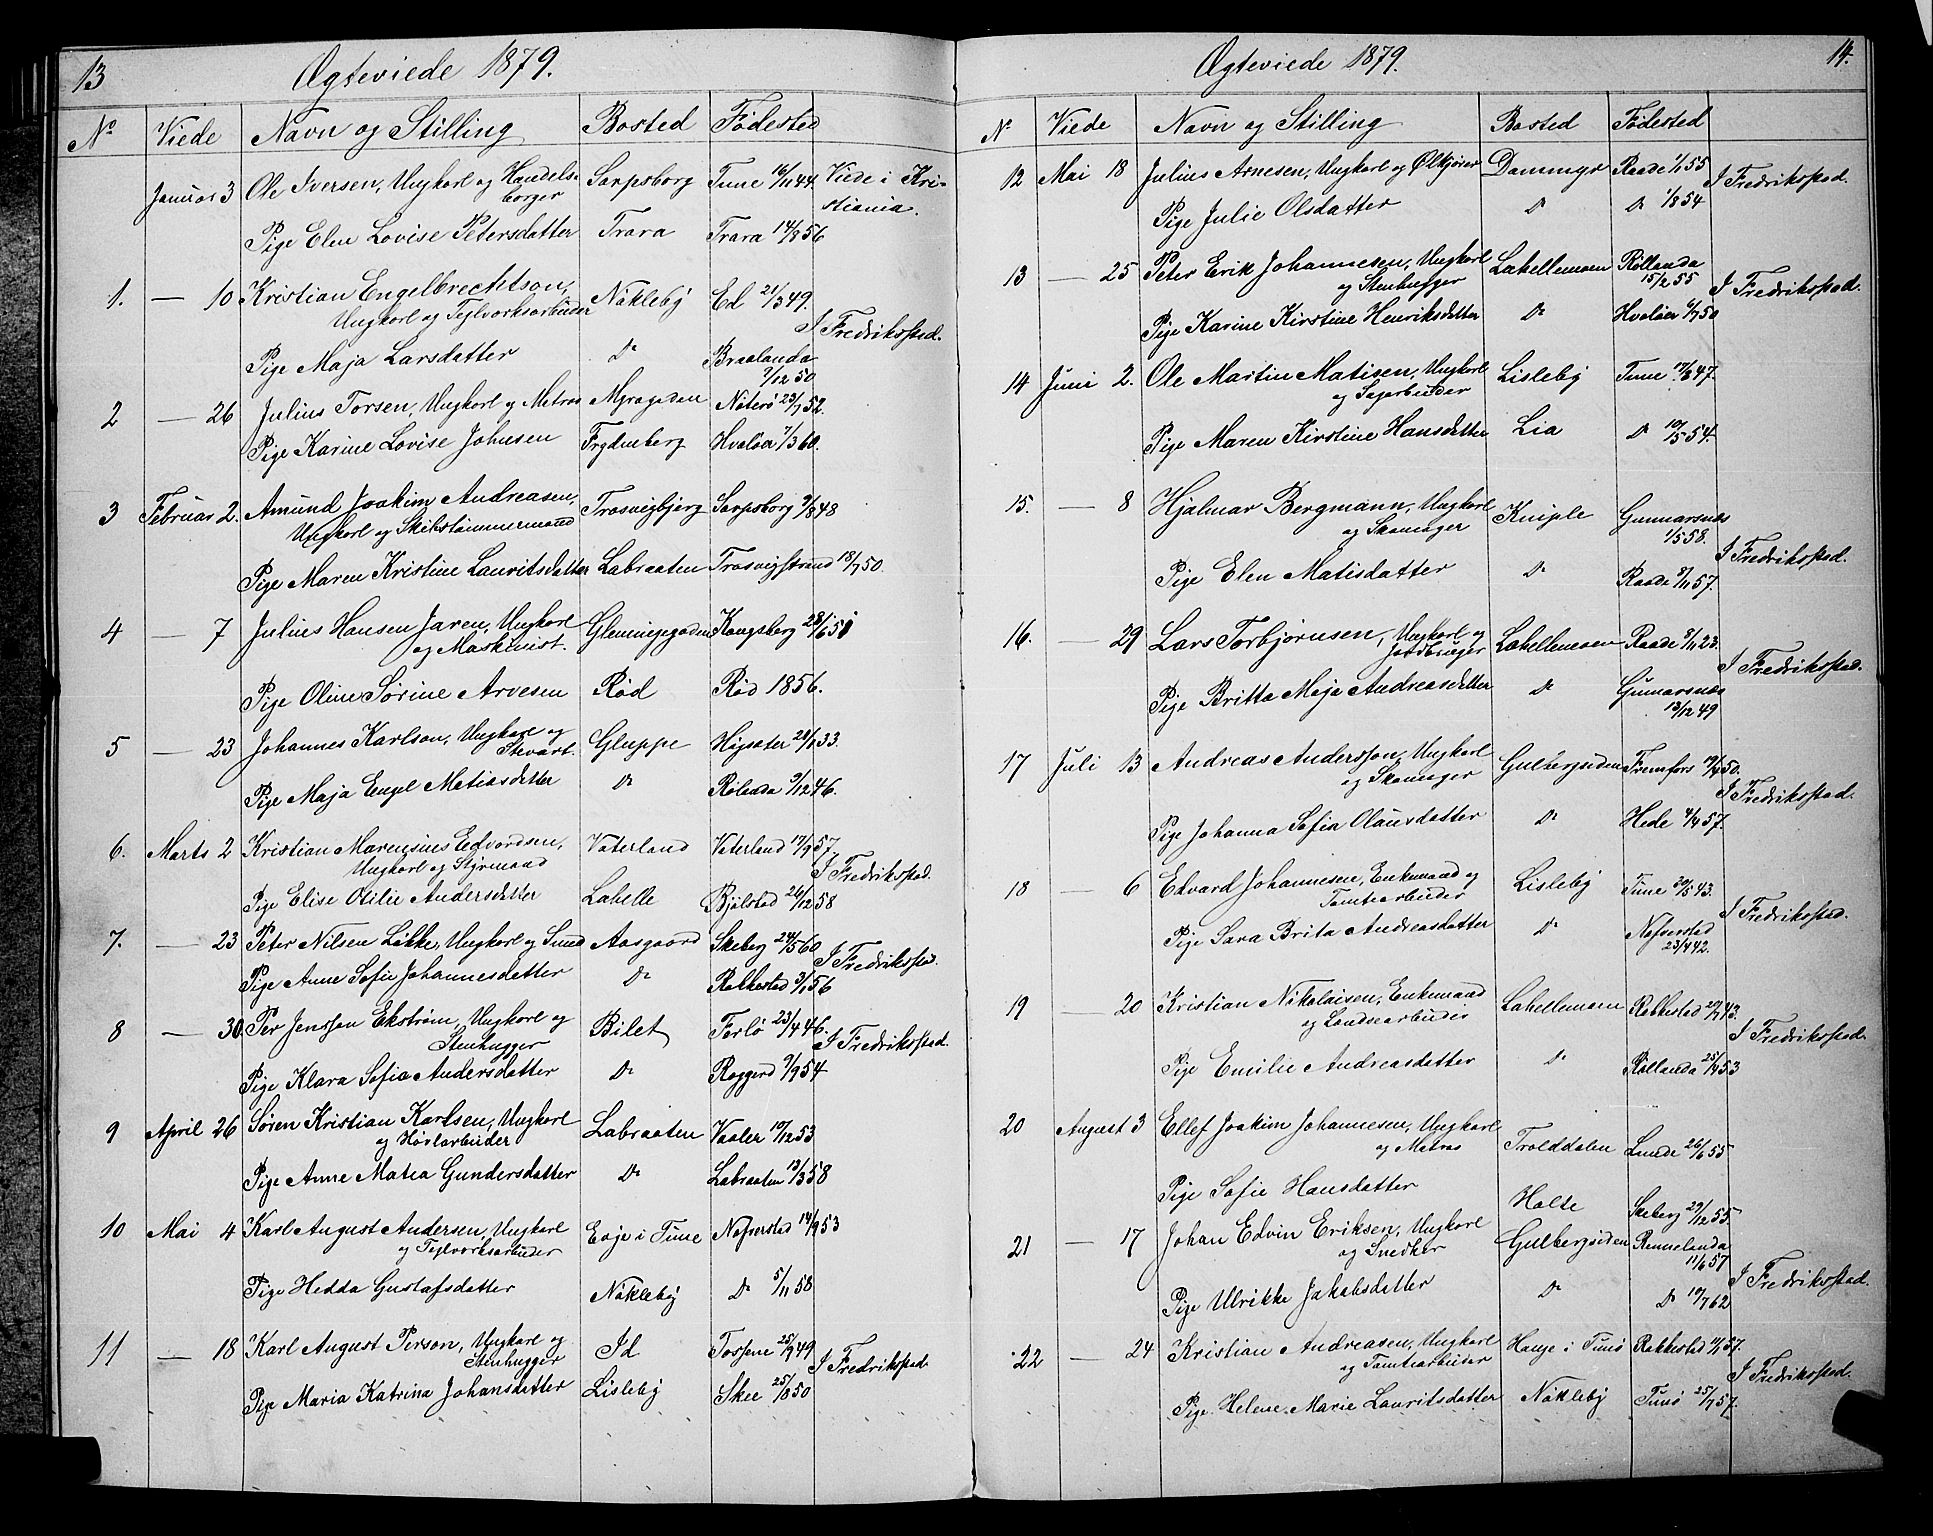 13 Ægteviede 1879.
No Viede Navn og Stilling Bosted Fødested
Januar 3 Ole Iversen, Ungkarl og Handels- Sarpsborg Tune 16/11 44. Viede i Kri-
borger stiania.
Pige Elen Lovise Petersdatter Trara Trara 14/8 56
1. — 10 Kristian Engelbrechtson, Nøkleby Ed 21/3 49.
Ungkarl og Teglværksarbeider I Fredrikstad.
Pige Maja Larsdatter Do Braalanda
9/12 50
2 — 26 Julius Torsen, Ungkarl og Matros Myragaden Nøterø 23/7 52.
Pige Karine Lovise Johnsen Frydenberg Hvaløer 7/3 60.
3 Februar 2. Amund Joakim Andreasen, Trosvigbjerg Sarpsborg 9/8 48
Ungkarl og Skibstømmermand
Pige Maren Kristine Lauritsdatter Labraaten Trosvigstrand 18/7 50.
4 — 7 Julius Hansen Jaren, Ungkarl Glemmegaden Kongsberg 28/6 51
og Maskinist.
Pige Oline Sørine Arvesen Rød Rød 1856.
5 — 23 Johannes Karlson, Ungkarl og Gluppe Høgsäter 28/1 33.
Stevart.
Pige Maja Engel Matiasdatter Do Rølanda 9/12 46.
6. Marts 2 Kristian Marensius Edvardsen, Vaterland Vaterland 17/9 57
Ungkarl og Styrmand I Fredrikstad.
Pige Elise Otilie Andersdatter Labelle 26/12 58
7. — 23 Peter Nilsen Løkke, Ungkarl og Smed Aasgaard Skeberg 24/5 60
I Fredrikstad.
Pige Anne Sofie Johannesdatter Do Rakkestad 3/1 56
8 — 30 Per Jensson Ekstrøm, Ungkarl og Bilet Ferlø 23/4 46.
Stenhugger I Fredrikstad.
Pige Klara Sofia Andersdatter Do Roggerd 9/9 54
9 April 26 Søren Kristian Karlsen, Ungkarl Labraaten Vaaler 19/12 53
og Høvlarbeider
Pige Anne Matea Gundersdatter Do Labraaten 13/3 58
10 Mai 4 Karl August Andersen, Ungkarl Evje i Tune Nafverstad 14/9 53
og Teglværksarbeider
Pige Hedda Gustafsdatter Nøkleby Do 5/11 58
11 — 18 Karl August Person, Ungkarl og Id Tossene 25/9 49
Stenhugger I Fredrikstad
Pige Maria Katrina Johansdatter Lisleby Skee 25/8 50
Ægteviede 1879. 14.
No Viede Navn og Stilling Bosted Fødested
12 Mai 18 Julius Arnesen, Ungkarl og Ølkjører Dammyr Raade 1/1 55
I Fredrikstad.
Pige Julie Olsdatter Do Do 1/8 54
13 — 25 Peter Erik Johannesen, Ungkarl Labellemoen Røllanda
og Stenhugger 15/2 55 I Fredrikstad.
Pige Karine Kirstine Henriksdatter Do Hvaløer 6/7 50
14 Juni 2. Ole Martin Matisen, Ungkarl Lisleby Tune 17/3 47.
og Sagarbeider
Pige Maren Kirstine Hansdatter Lia Do 10/5 54.
15. — 8 Hjalmar Bergmann, Ungkarl Kniple Gunnarsnæs
og Skomager 1/5 58.
I Fredrikstad.
Pige Elen Matisdatter Do Raade 8/11 57.
16. — 29 Lars Torbjørnsen, Ungkarl og Labellemoen Raade 8/11 23.
Jordbruger I Fredrikstad.
Pige Britta Maja Andreasdatter Do Gunnarsnæs
13/12 49
17 Juli 13 Andreas Andersson, Ungkarl Gulbergsiden
og Skomager I Fredrikstad.
Pige Johanna Sofia Olausdatter Do Hede 4/4 57.
18 — 6 Edvard Johannesen, Enkemand og Lisleby Tune 30/5 43.
Tomtearbeider I Fredrikstad.
Pige Sara Brita Andreasdatter Do Nafverstad
23/4 42.
19 — 20 Kristian Nikolaisen, Enkemand Labellemoen Rakkestad
og Landsearbeider I Fredrikstad
Pige Emilie Andreasdatter Do Røllanda 25/1 53
20 August 3 Ellef Joakim Johannesen, Ungkarl
og Matros Trolddalen Lande 26/6 55
Pige Sofie Hansdatter Holte Skeberg 29/12 55.
21 — 17 Johan Edvin Eriksen, Ungkarl Gulbergsiden Rennelanda
og Snedker 11/6 57
I Fredrikstad.
Pige Ulrikke Jakobsdatter Do Do 19/7 62
22 — 24 Kristian Andreasen, Ungkarl Hauge i Tunø Rakkestad 11/1 57.
og Tomtearbeider I Fredrikstad.
Pige Helene Marie Lauritsdatter Nøkleby Tunø 25/7 57.